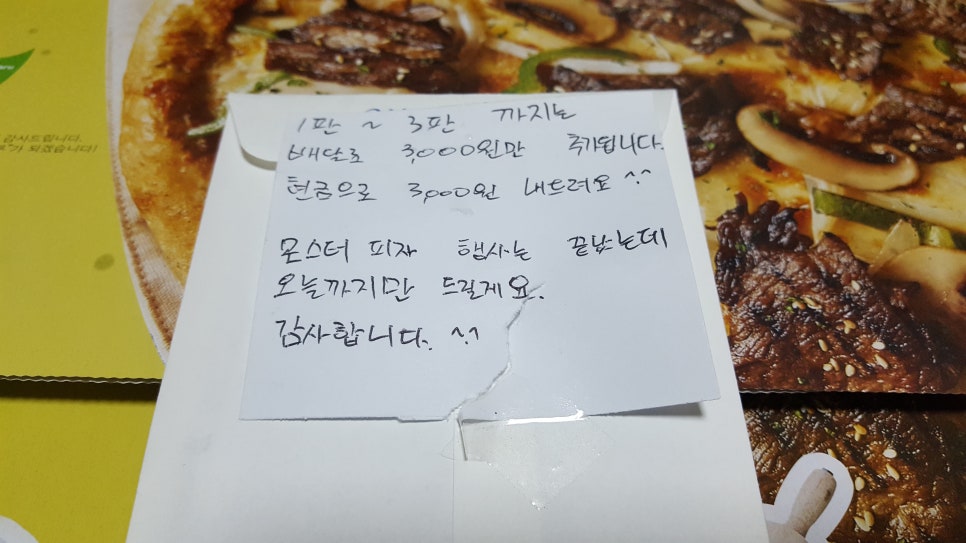 감사드립니다.
가 되겠습니다!
1판 ~ 3판 까지는
배달로 3,000원만 추가됩니다.
현금으로 3,000원 내드려요 ^.^
몬스터 피자 행사는 끝났는데
오늘까지만 드릴게요.
감사합니다. ^.^